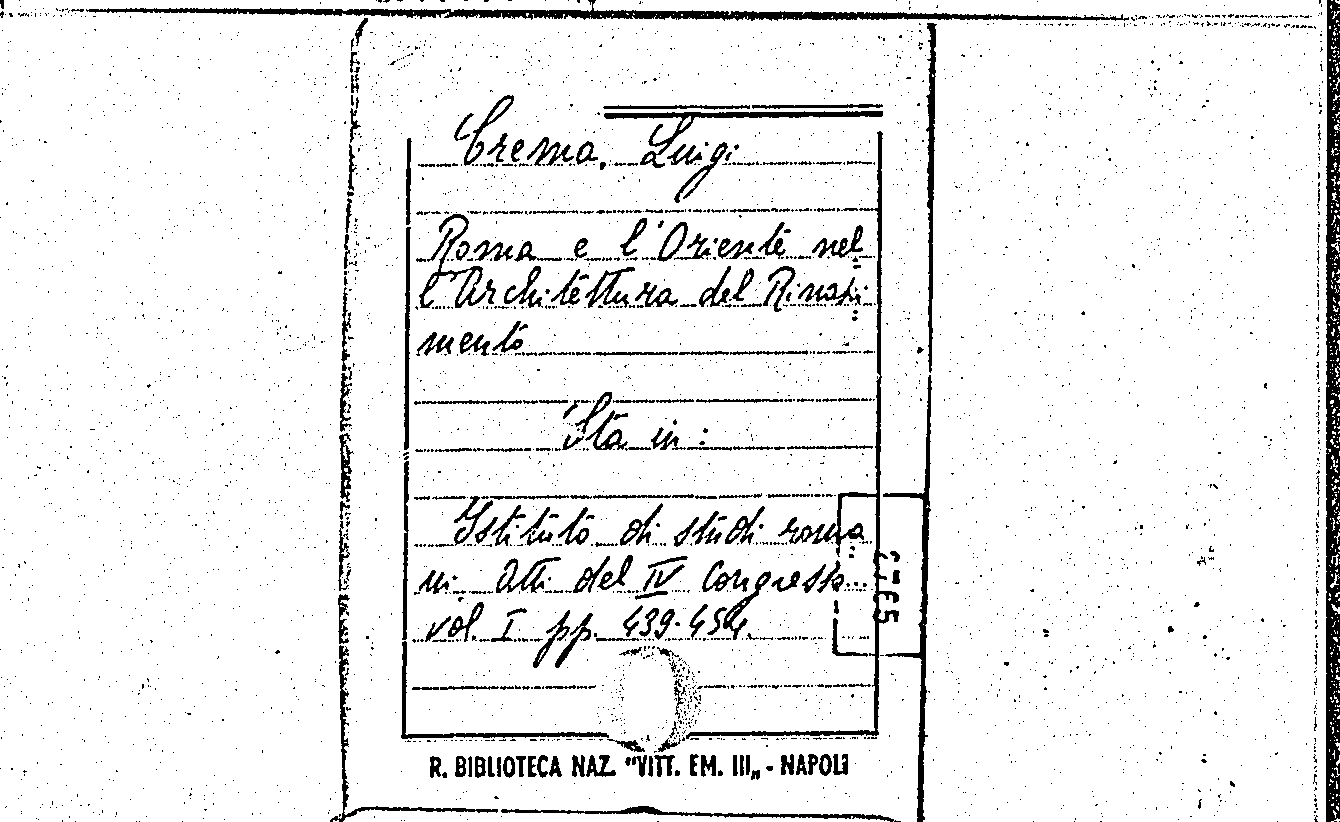 Crema, Luigi
Roma e l'Oriente nel
l'Architettura del Rinasci
mento
Sta in:
Istituto di studi roma
ni. Atti del IV Congresso..
vol. I pp. 439-454.
R. BIBLIOTECA NAZ. "VITT. EM. III„ - NAPOLI